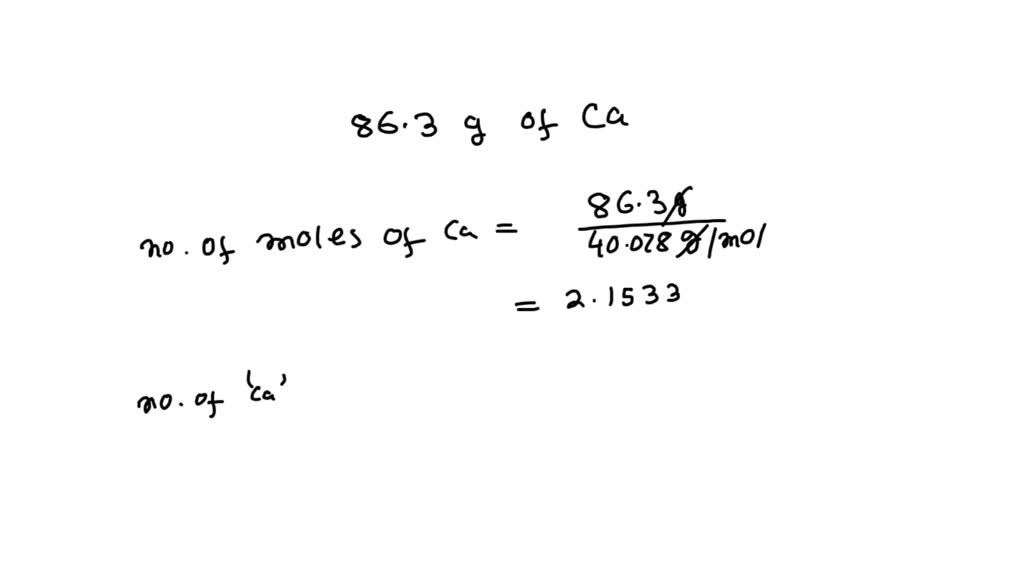 86.3 g of Ca
no. of moles of Ca = 86.3g / 40.078 g/mol
= 2.1533
no. of 'Ca'